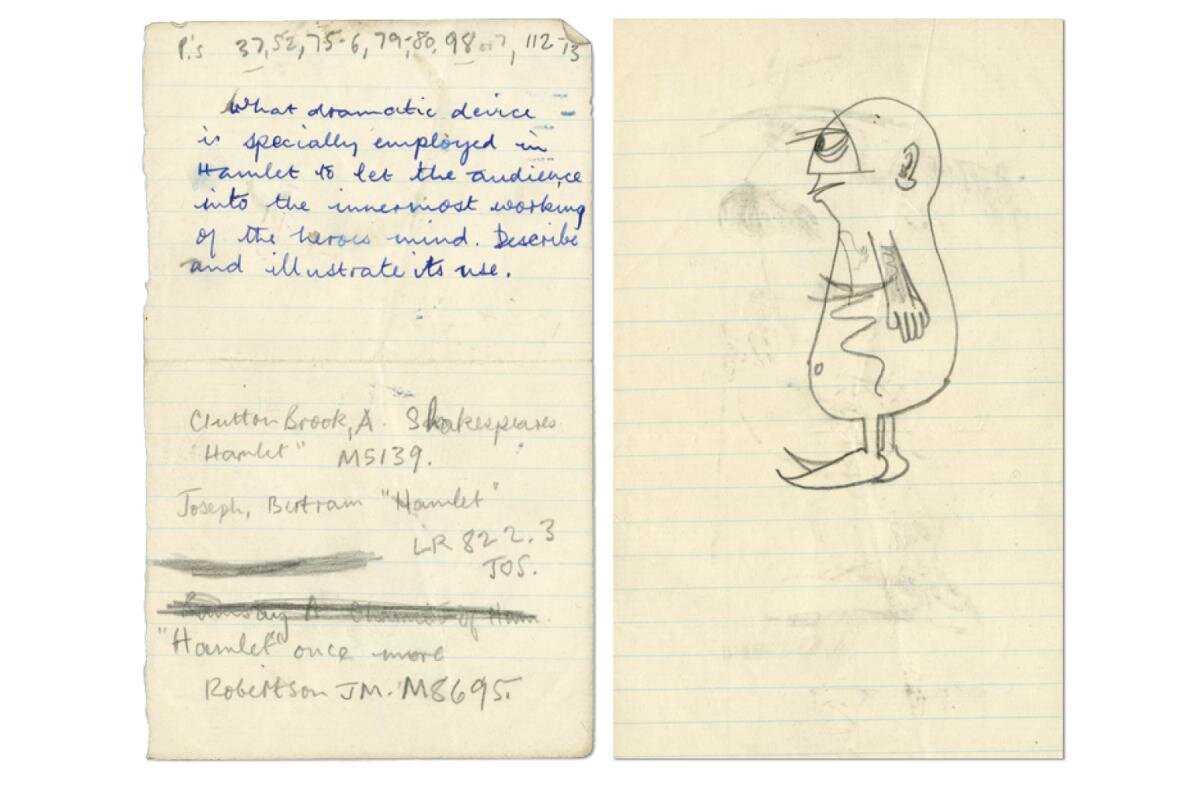 P.'s 37, 52, 75-6, 79-80, 98 or 7, 112-13
What dramatic device
is specially employed in
Hamlet to let the audience
into the innermost working
of the heroes mind. Describe
and illustrate its use.
Clutton Brook, A. Shakespeares
"Hamlet" M5139.
Joseph, Bertram "Hamlet"
LR 822.3
JOS.
"Hamlet" once more
Robertson JM. M8695.